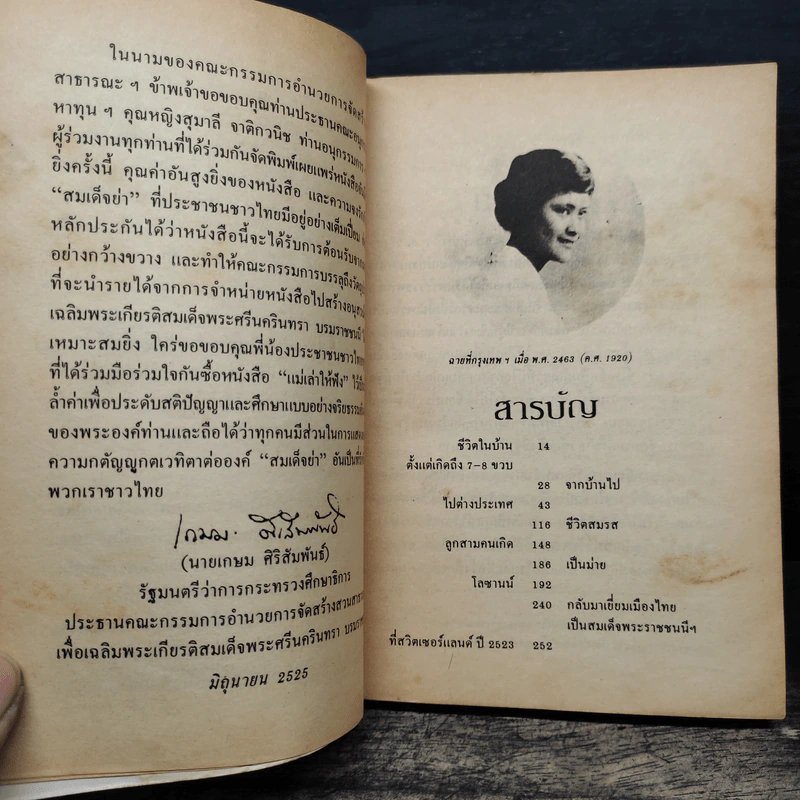 ในนามของคณะกรรมการอำนวยการจัดสร้
สาธารณะ ฯ ข้าพเจ้าขอขอบคุณท่านประธานคณะอนุกรรม
หาทุน ฯ คุณหญิงสุมาลี จาติกวนิช ท่านอนุกรรมการ
ผู้ร่วมงานทุกท่านที่ได้ร่วมกันจัดพิมพ์เผยแพร่หนังสือ
ยิ่งครั้งนี้ คุณค่าอันสูงยิ่งของหนังสือ และความจงรัก
“สมเด็จย่า” ที่ประชาชนชาวไทยมีอยู่อย่างเต็มเปี่ยม
หลักประกันได้ว่าหนังสือนี้จะได้รับการต้อนรับจาก
อย่างกว้างขวาง และทำให้คณะกรรมการบรรลุถึงวัตถุ
ที่จะนำรายได้จากการจำหน่ายหนังสือไปสร้าง
เฉลิมพระเกียรติสมเด็จพระศรีนครินทรา บรมราชชนนี
เหมาะสมยิ่ง ใคร่ขอขอบคุณพี่น้องประชาชนชาวไทย
ที่ได้ร่วมมือร่วมใจกันซื้อหนังสือ “แม่เล่าให้ฟัง” ไว้
ล้ำค่าเพื่อประดับสติปัญญาและศึกษาแบบอย่างจริยธรรม
ของพระองค์ท่านและถือได้ว่าทุกคนมีส่วนในการแสดง
ความกตัญญูกตเวทิตาต่อองค์ “สมเด็จย่า” อันเป็นที่รัก
พวกเราชาวไทย
เกษม ศิริสัมพันธ์
(นายเกษม ศิริสัมพันธ์)
รัฐมนตรีว่าการกระทรวงศึกษาธิการ
ประธานคณะกรรมการอำนวยการจัดสร้างสวนสาธารณะ
เพื่อเฉลิมพระเกียรติสมเด็จพระศรีนครินทรา บรมราช
มิถุนายน 2525
ฉายที่กรุงเทพ ฯ เมื่อ พ.ศ. 2463 (ค.ศ. 1920)
สารบัญ
ชีวิตในบ้าน 14
ตั้งแต่เกิดถึง 7-8 ขวบ
28 จากบ้านไป
ไปต่างประเทศ 43
116 ชีวิตสมรส
ลูกสามคนเกิด 148
186 เป็นม่าย
โลซานน์ 192
240 กลับมาเยี่ยมเมืองไทย
เป็นสมเด็จพระราชชนนีฯ
ที่สวิตเซอร์แลนด์ ปี 2523 252